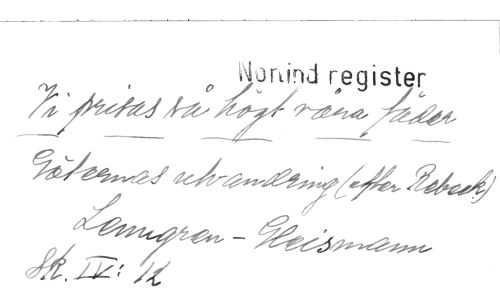 Nonind register
Vi prisas så högt våra fäder
Göternas utvandring (efter Rebeck)
Lenngren - Gleismann
Sk. IV: 12